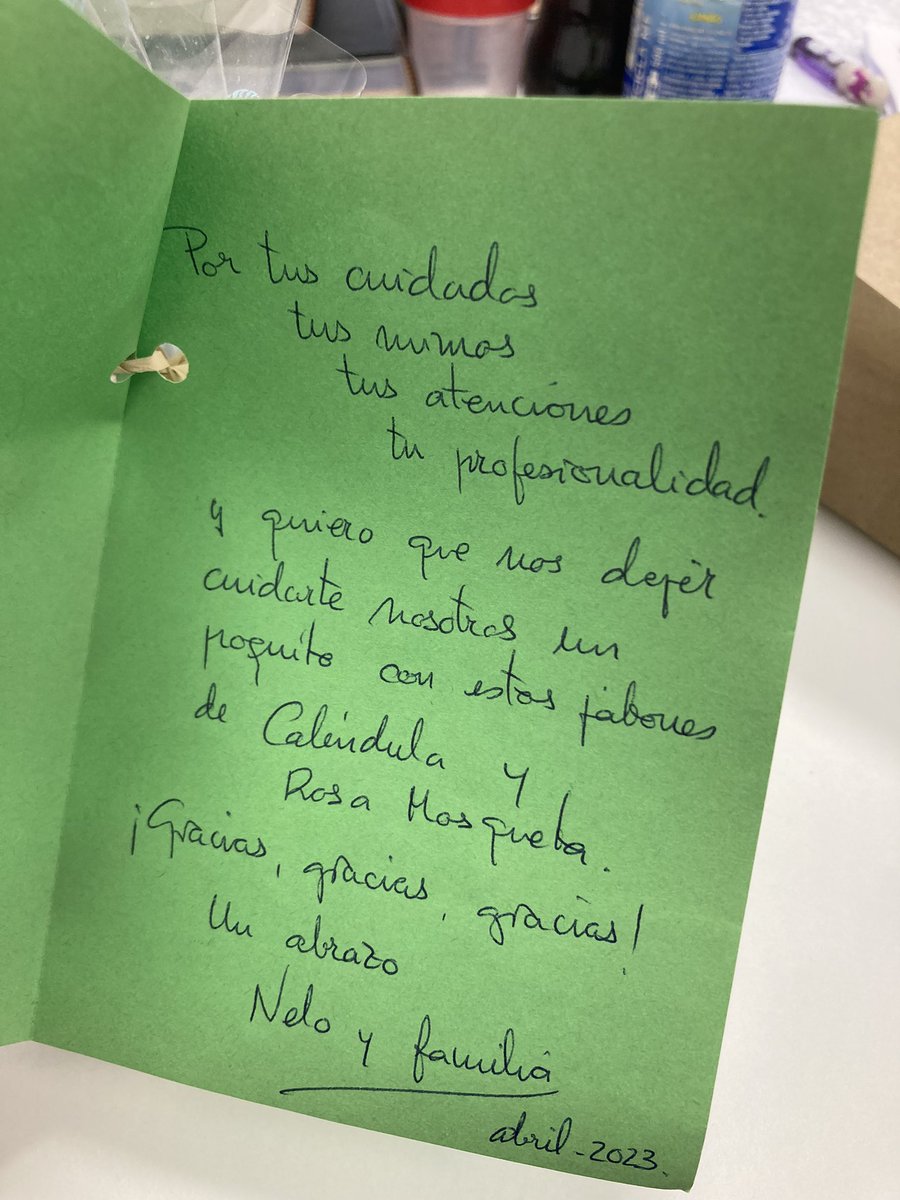 Por tus cuidados
tus mimos
tus atenciones
tu profesionalidad.
y quiero que nos dejéis
cuidarte nosotros un
poquito con estos jabones
de Caléndula y
Rosa Mosqueta.
¡Gracias, gracias, gracias!
Un abrazo
Nelo y familia
abril-2023.